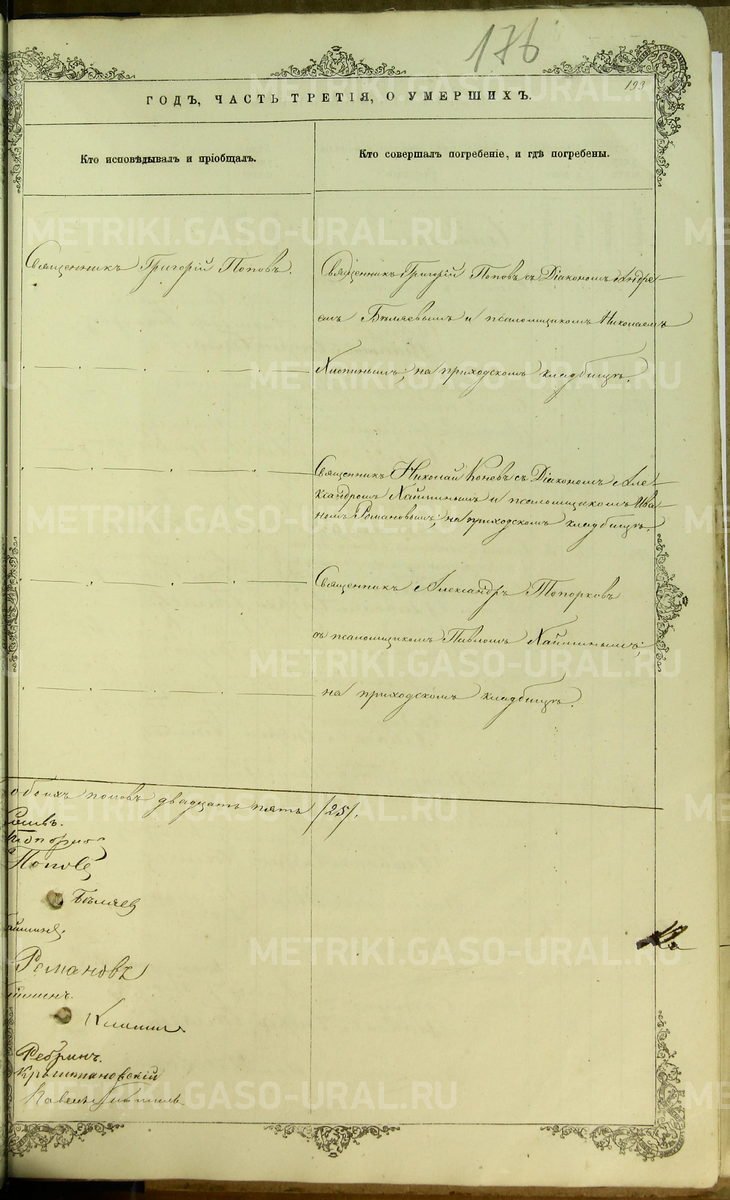 176
193
ГОДЪ, ЧАСТЬ ТРЕТІЯ, О УМЕРШИХЪ.
Кто исповѣдывалъ и пріобщалъ.
Кто совершалъ погребеніе, и гдѣ погребены.
Священникъ Григорій Поповъ.
Священникъ Григорій Поповъ съ Діакономъ Андре-
емъ Бѣляевымъ и псаломщикомъ Николаемъ
на приходскомъ кладбищѣ.
Священникъ Николай Поповъ съ Діакономъ Але-
ксандромъ и псаломщикомъ Ива-
номъ Романовымъ; на приходскомъ кладбищѣ.
Священникъ Александръ Топорковъ
съ псаломщикомъ Павломъ
на приходскомъ кладбищѣ.
обоихъ половъ двадцать пять /25/.
Поповъ
Бѣляев
Романовъ
Ребринъ.
METRIKI.GASO-URAL.RU